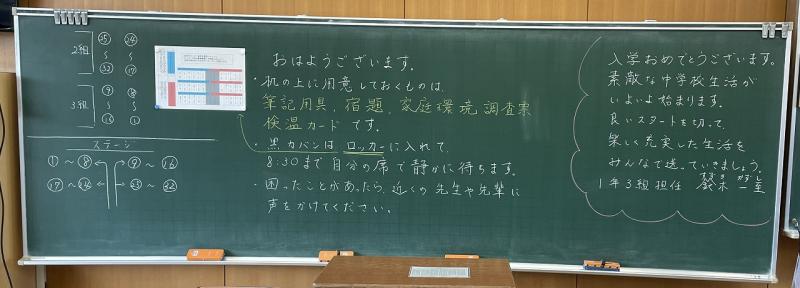 2組
㉕ ㉔
〜 〜
㉜ ⑰
3組
⑨ ⑧
〜 〜
⑯ ①
ステージ
①〜⑧ ⑨〜⑯
⑰〜㉔ ㉕〜㉜
おはようございます。
・机の上に用意しておくものは、
筆記用具、宿題、家庭環境調査票
検温カードです。
・黒カバンはロッカーに入れて、
8:30まで自分の席で静かに待ちます。
・困ったことがあったら、近くの先生や先輩に
声をかけてください。
入学おめでとうございます。
素敵な中学校生活が
いよいよ始まります。
良いスタートを切って、
楽しく充実した生活を
みんなで送っていきましょう。
1年3組担任 鈴木